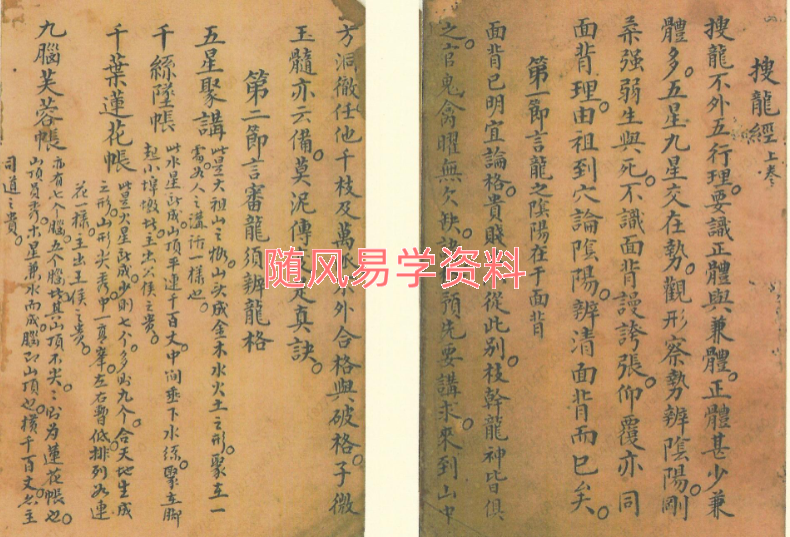 搜龍經 上卷
搜龍不外五行理。要識正體與兼體。正體甚少兼
體多。五星九星交在勢。觀形察勢辨陰陽。剛
柔强弱生與死。不識面背謾誇張。仰覆亦同
面背理。由祖到穴論陰陽。辨清面背而已矣。
第一節言龍之陰陽在于面背
面背已明宜論格。貴賤從此別。枝幹龍神皆俱
之。官鬼禽曜無欠缺。預先要講求。來到山中
芳洞徹。任他千枝及萬不外合格與破格。子微
玉髓亦云備。莫泥傳是真訣。
第二節言審龍須辨龍格
五星聚講 此是大祖山之山頭成金木水火土之形。聚在一
處如人之講一樣也。
千絲墜帳 此水星所成山頂平連千百丈。中间垂下水絲。聚在脚
起小埠墩。主出公侯之貴。
千葉蓮花帳 此是火星所成。少則七个。多則九个。合天地生成
之形。山形尖秀。中一頁峯。左右暫低。排列如連
花一樣。主出王侯之貴。
九腦芙蓉帳 亦有七个腦五个腦。其山頂不尖。則為蓮花帳也。
山頂員秀。木星兼水而成。腦即山頂也。橫千百丈。主
司道之貴。
随风易学资料